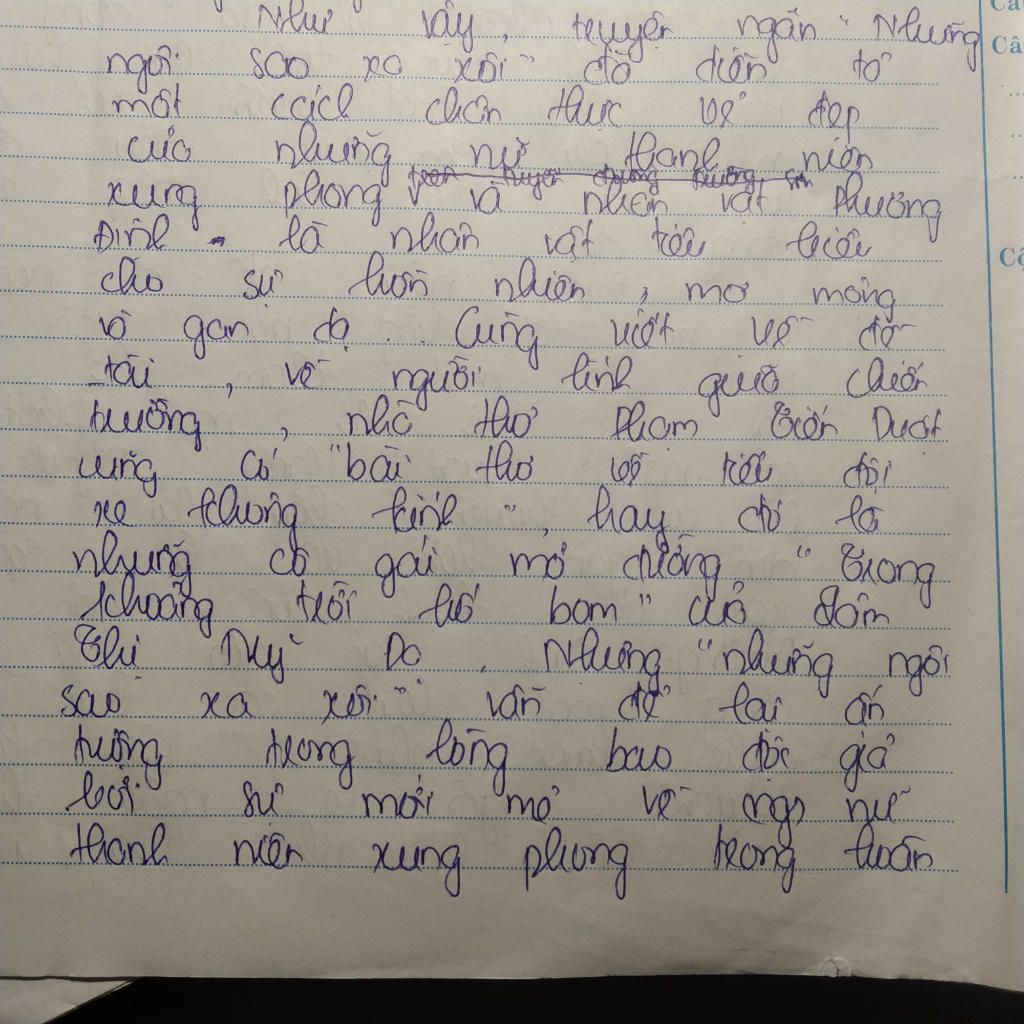 Như vậy, truyện ngắn "Những
ngôi sao xa xôi" đã diễn tả
một cách chân thực vẻ đẹp
của những nữ thanh niên
trên tuyến đường Trường Sơn
xung phong và nhân vật Phương
Định là nhân vật tiêu biểu
cho sự hồn nhiên, mơ mộng
và gan dạ. Cũng viết về đề
tài, về người lính giữa chiến
trường, nhà thơ Phạm Tiến Duật
cũng có "bài thơ về tiểu đội
xe không kính", hay đó là
những cô gái mở đường "Trong
khoảng trời hố bom" của Lâm
Thị Mỹ Dạ. Nhưng "những ngôi
sao xa xôi" vẫn để lại ấn
tượng trong lòng bao độc giả
bởi sự mới mẻ về nữ
thanh niên xung phong trong hoàn